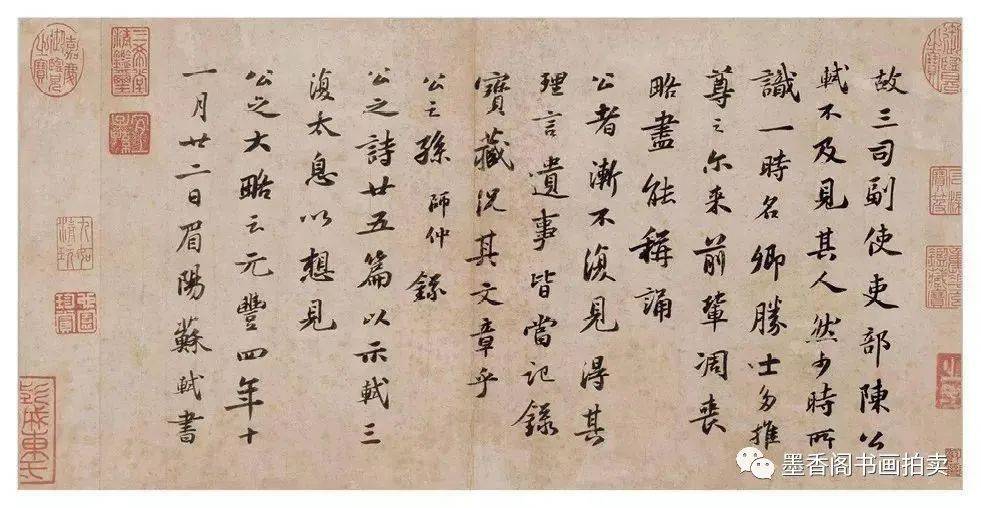 故三司副使吏部陳公
軾不及見其人然少時所
識一時名卿勝士多推
尊之尔来前輩凋喪
略盡能稱誦
公者漸不復見得其
理言遺事皆當記錄
寶藏況其文章乎
公之孫師仲錄
公之詩廿五篇以示軾三
復太息以想見
公之大略云元豐四年十
一月廿二日眉陽蘇軾書
嘉慶御覽之寶
三希堂精鑒璽
宜子孫
墨香阁书画拍卖